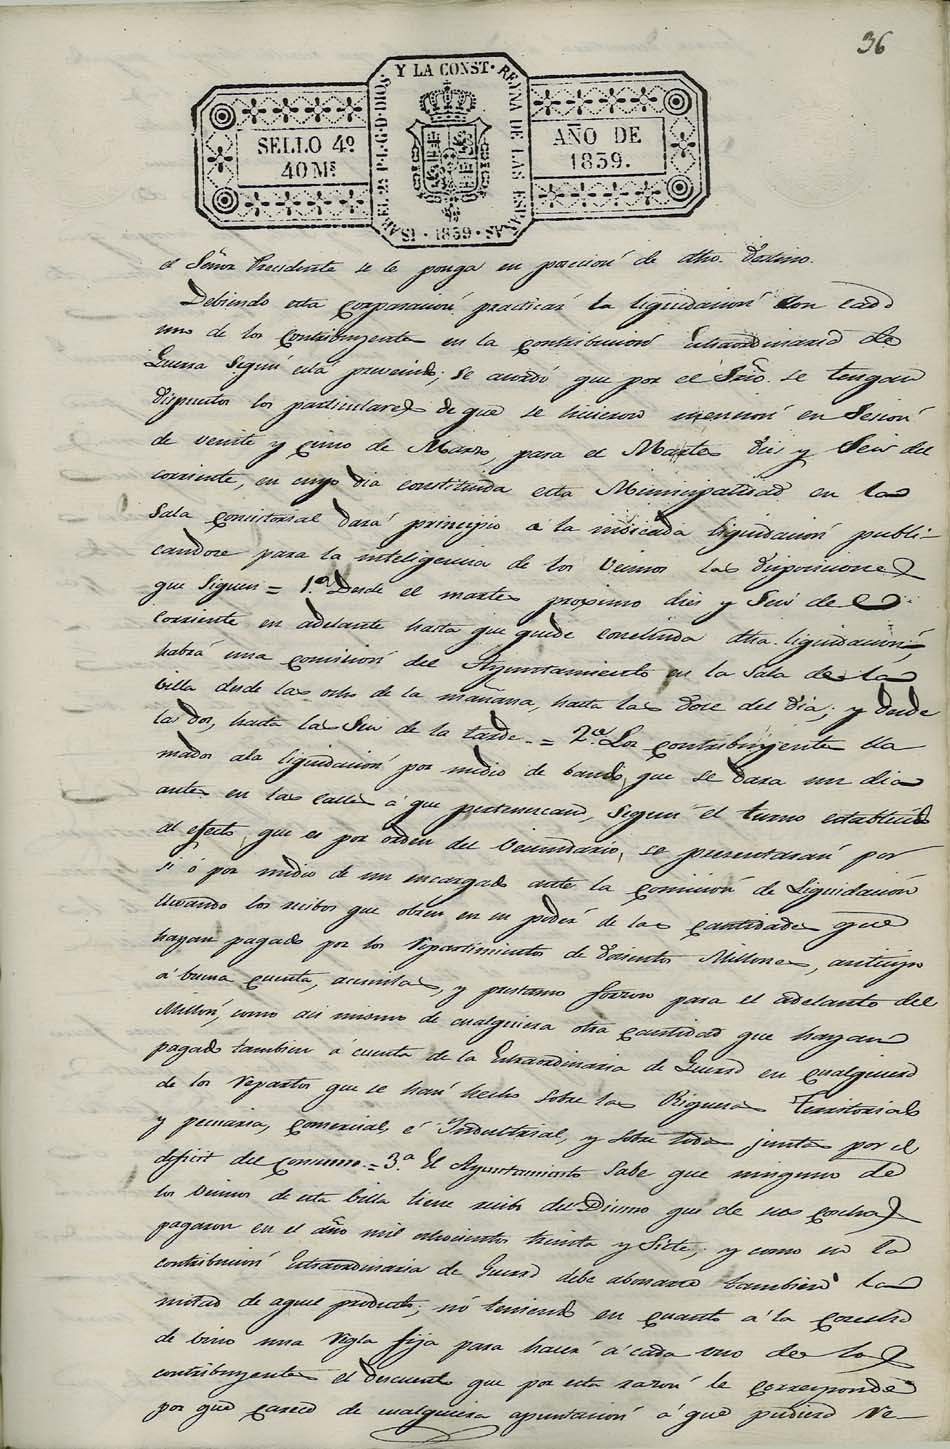 36
SELLO 4º
40 Ms
ISABEL 2ª P. L. G. D. DIOS Y LA CONST. REYNA DE LAS ESPAÑAS · 1839 ·
AÑO DE
1839.
el Señor Presidente se le ponga en posecion de dho. destino.
Debiendo esta corporacion practicar la liquidacion con cada
uno de los contribuyentes en la contribucion Extraordinaria de
Guerra segun está prevenido; se acordó que por el Srio. se tengan
dispuestos los particulares de que se hicieron mencion en Sesion
de veinte y cinco de Marzo, para el Martes dies y seis del
corriente, en cuyo dia constituida esta Municipalidad en la
Sala consistorial dará principio a la indicada liquidacion publi-
candose para la inteligencia de los vecinos las disposiciones
que siguen = 1.ª Desde el martes proximo dies y seis del
corriente en adelante hasta que quede concluida dha. liquidacion,
habrá una comision del Ayuntamiento en la Sala de la
villa desde las ocho de la mañana, hasta las doce del dia; y desde
las dos, hasta las seis de la tarde. = 2.ª Los contribuyentes lla
mados ala liquidacion por medio de bando, que se dara un dia
antes en las calles á que pertenezcan, segun el turno establecido
al efecto, que es por orden del vecindario, se presentarán por
si ó por medio de un encargado ante la comision de Liquidacion
llevando los recibos que obren en su poder de las cantidades que
hayan pagado por los repartimientos de doscientos Millones, anticipo
á buena cuenta, y prestamo forzoso para el adelanto del
Millon, como asi mismo de cualquiera otra cantidad que hayan
pagado tambien á cuenta de la Extraordinaria de Guerra en cualquiera
de los repartos que se han hecho sobre las Riquezas Territorial
y pecuaria, comercial, é Industrial, y sobre todas juntas por el
deficit del consumo. = 3.ª El Ayuntamiento sabe que ninguno de
los vecinos de esta villa tiene recibo del Diezmo que de sus cosechas
pagaron en el año mil ochocientos treinta y siete; y como en la
contribucion Extraordinaria de Guerra debe abonarse tambien la
mitad de aquel producto; nó teniendo en cuanto á la cosecha
de vino una regla fija para hacer á cada uno de los
contribuyentes el descuento que por esta razon le corresponde
por que carece de cualquiera apuntacion á que pudiera re-